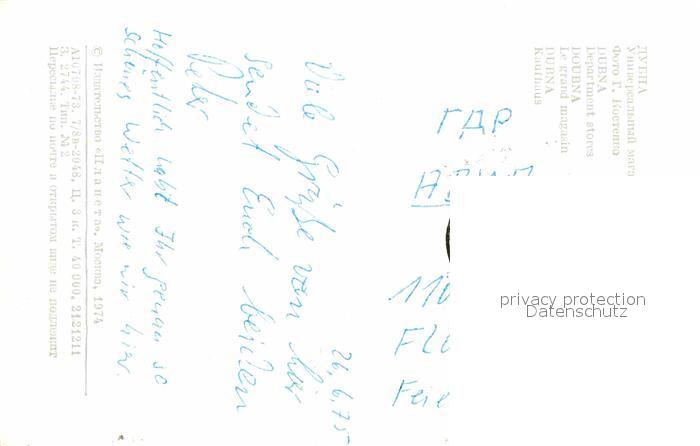 ДУБНА
Универсальный мага
Фото Г. Костенко
DUBNA
Department stores
DOUBNA
Le grand magasin
DUBNA
Kaufhaus
26.6.75
Viele Grüße von hier
sendet Euch beiden
Peter
Hoffentlich habt Ihr genau so
schönes Wetter wie wir hier.
© Издательство «Планета». Москва, 1974
А10708-73. 7/8в-2048. Ц. 3 к. Т. 40 000. 2121211
З. 2744. Тип. № 2
Пересылке по почте в открытом виде не подлежит
ГДР
110
Feie
privacy protection
Datenschutz